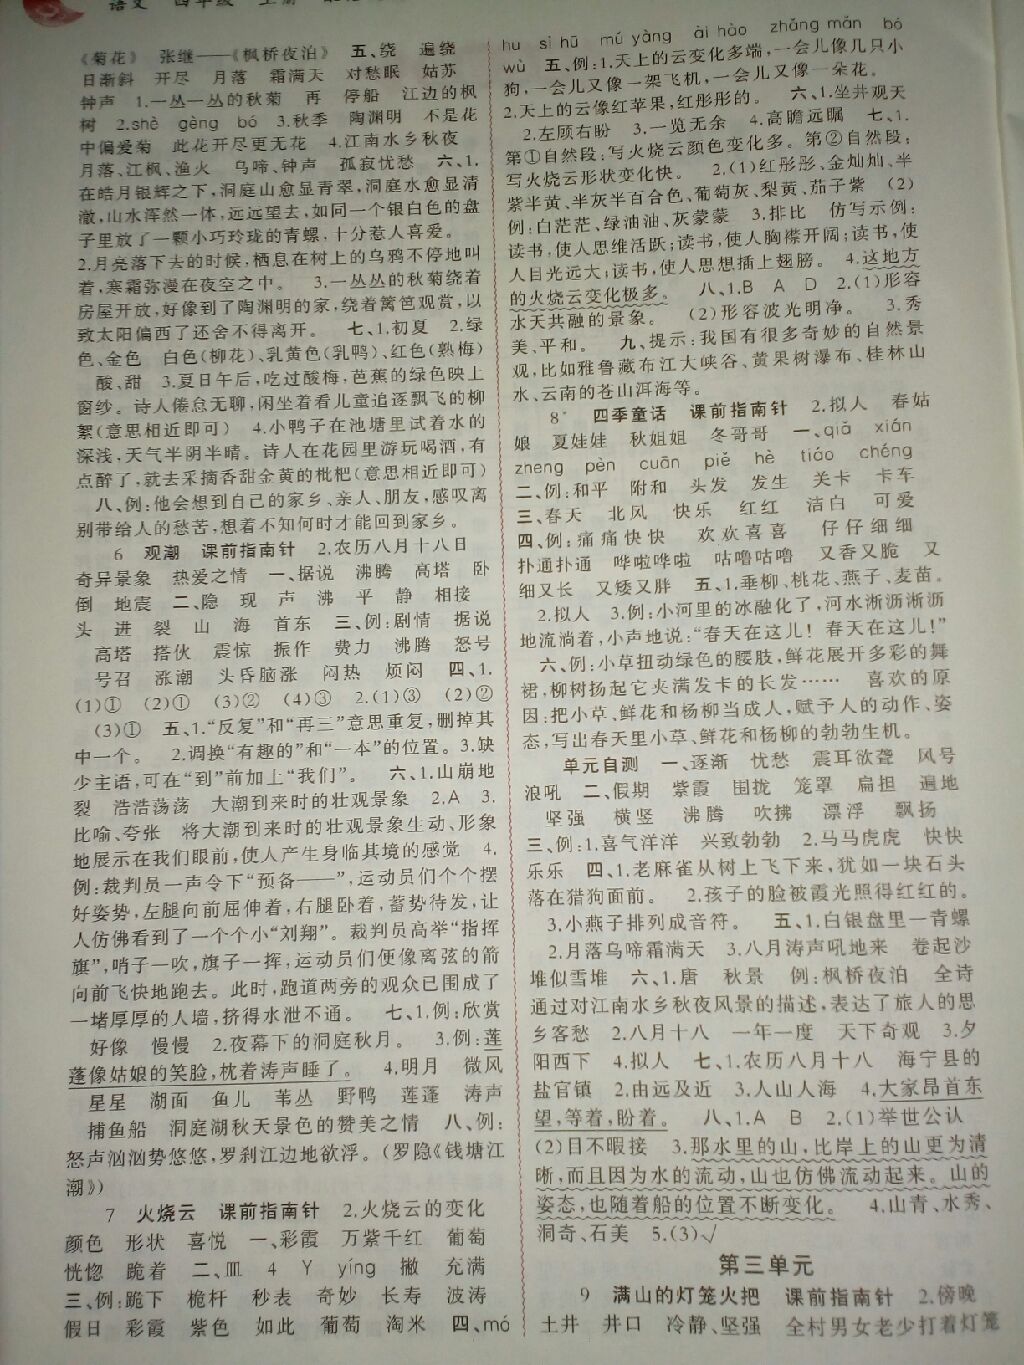 语文 四年级 上册
《菊花》 张继——《枫桥夜泊》 五、绕 遍绕
日渐斜 开尽 月落 霜满天 对愁眠 姑苏
钟声 1.一丛一丛的秋菊 再 停船 江边的枫
树 2.shè gèng bó 3.秋季 陶渊明 不是花
中偏爱菊 此花开尽更无花 4.江南水乡秋夜
月落、江枫、渔火 乌啼、钟声 孤寂忧愁 六、1.
在皓月银辉之下,洞庭山愈显青翠,洞庭水愈显清
澈,山水浑然一体,远远望去,如同一个银白色的盘
子里放了一颗小巧玲珑的青螺,十分惹人喜爱。
2.月亮落下去的时候,栖息在树上的乌鸦不停地叫
着,寒霜弥漫在夜空之中。 3.一丛丛的秋菊绕着
房屋开放,好像到了陶渊明的家,绕着篱笆观赏,以
致太阳偏西了还舍不得离开。 七、1.初夏 2.绿
色、金色 白色(柳花)、乳黄色(乳鸭)、红色(熟梅)
酸、甜 3.夏日午后,吃过酸梅,芭蕉的绿色映上
窗纱。诗人倦怠无聊,闲坐着看儿童追逐飘飞的柳
絮(意思相近即可) 4.小鸭子在池塘里试着水的
深浅,天气半阴半晴。诗人在花园里游玩喝酒,有
点醉了,就去采摘香甜金黄的枇杷(意思相近即可)
八、例:他会想到自己的家乡、亲人、朋友,感叹离
别带给人的愁苦,想着不知何时才能回到家乡。
6 观潮 课前指南针 2.农历八月十八日
奇异景象 热爱之情 一、据说 沸腾 高塔 卧
倒 地震 二、隐 现 声 沸 平 静 相接
头 进 裂 山 海 首东 三、例:剧情 据说
高塔 搭伙 震惊 振作 费力 沸腾 怒号
号召 涨潮 头昏脑涨 闷热 烦闷 四、1.
(1)① (2)① (3)② (4)③ 2.(1)③ (2)②
(3)① 五、1.“反复”和“再三”意思重复,删掉其
中一个。 2.调换“有趣的”和“一本”的位置。3.缺
少主语,可在“到”前加上“我们”。 六、1.山崩地
裂 浩浩荡荡 大潮到来时的壮观景象 2.A 3.
比喻、夸张 将大潮到来时的壮观景象生动、形象
地展示在我们眼前,使人产生身临其境的感觉 4.
例:裁判员一声令下“预备——”,运动员们个个摆
好姿势,左腿向前屈伸着,右腿卧着,蓄势待发,让
人仿佛看到了一个个小“刘翔”。裁判员高举“指挥
旗”,哨子一吹,旗子一挥,运动员们便像离弦的箭
向前飞快地跑去。此时,跑道两旁的观众已围成了
一堵厚厚的人墙,挤得水泄不通。 七、1.例:欣赏
好像 慢慢 2.夜幕下的洞庭秋月。 3.例:莲
蓬像姑娘的笑脸,枕着涛声睡了。 4.明月 微风
星星 湖面 鱼儿 苇丛 野鸭 莲蓬 涛声
捕鱼船 洞庭湖秋天景色的赞美之情 八、例:
怒声汹汹势悠悠,罗刹江边地欲浮。(罗隐《钱塘江
潮》)
7 火烧云 课前指南针 2.火烧云的变化
颜色 形状 喜悦 一、彩霞 万紫千红 葡萄
恍惚 跪着 二、皿 4 Y yíng 撇 充满
三、例:跪下 桅杆 秒表 奇妙 长寿 波涛
假日 彩霞 紫色 如此 葡萄 淘米 四、mó
hu sì hū mú yàng ài hào zhǎng mǎn bó
wù 五、例:1.天上的云变化多端,一会儿像几只小
狗,一会儿又像一架飞机,一会儿又像一朵花。
2.天上的云像红苹果,红彤彤的。 六、1.坐井观天
2.左顾右盼 3.一览无余 4.高瞻远瞩 七、1.
第①自然段:写火烧云颜色变化多。第②自然段:
写火烧云形状变化快。 2.(1)红彤彤、金灿灿、半
紫半黄、半灰半百合色、葡萄灰、梨黄、茄子紫 (2)
例:白茫茫、绿油油、灰蒙蒙 3.排比 仿写示例:
读书,使人思维活跃;读书,使人胸襟开阔;读书,使
人目光远大;读书,使人思想插上翅膀。 4.这地方
的火烧云变化极多。 八、1.B A D 2.(1)形容
水天共融的景象。 (2)形容波光明净。 3.秀
美、平和。 九、提示:我国有很多奇妙的自然景
观,比如雅鲁藏布江大峡谷、黄果树瀑布、桂林山
水、云南的苍山洱海等。
8* 四季童话 课前指南针 2.拟人 春姑
娘 夏娃娃 秋姐姐 冬哥哥 一、qiā xián
zheng pèn cuān piě hè tiáo chéng
二、例:和平 附和 头发 发生 关卡 卡车
三、春天 北风 快乐 红红 洁白 可爱
四、例:痛痛快快 欢欢喜喜 仔仔细细
扑通扑通 哗啦哗啦 咕噜咕噜 又香又脆 又
细又长 又矮又胖 五、1.垂柳、桃花、燕子、麦苗。
2.拟人 3.例:小河里的冰融化了,河水淅沥淅沥
地流淌着,小声地说:“春天在这儿! 春天在这儿!”
六、例:小草扭动绿色的腰肢,鲜花展开多彩的舞
裙,柳树扬起它夹满发卡的长发…… 喜欢的原
因:把小草、鲜花和杨柳当成人,赋予人的动作、姿
态,写出春天里小草、鲜花和杨柳的勃勃生机。
单元自测 一、逐渐 忧愁 震耳欲聋 风号
浪吼 二、假期 紫霞 围拢 笼罩 扁担 遍地
坚强 横竖 沸腾 吹拂 漂浮 飘扬
三、例:1.喜气洋洋 兴致勃勃 2.马马虎虎 快快
乐乐 四、1.老麻雀从树上飞下来,犹如一块石头
落在猎狗面前。 2.孩子的脸被霞光照得红红的。
3.小燕子排列成音符。 五、1.白银盘里一青螺
2.月落乌啼霜满天 3.八月涛声吼地来 卷起沙
堆似雪堆 六、1.唐 秋景 例:枫桥夜泊 全诗
通过对江南水乡秋夜风景的描述,表达了旅人的思
乡客愁 2.八月十八 一年一度 天下奇观 3.夕
阳西下 4.拟人 七、1.农历八月十八 海宁县的
盐官镇 2.由远及近 3.人山人海 4.大家昂首东
望,等着,盼着。 八、1.A B 2.(1)举世公认
(2)目不暇接 3.那水里的山,比岸上的山更为清
晰,而且因为水的流动,山也仿佛流动起来。山的
姿态,也随着船的位置不断变化。 4.山青、水秀、
洞奇、石美 5.(3)√
第三单元
9 满山的灯笼火把 课前指南针 2.傍晚
土井 井口 冷静、坚强 全村男女老少打着灯笼